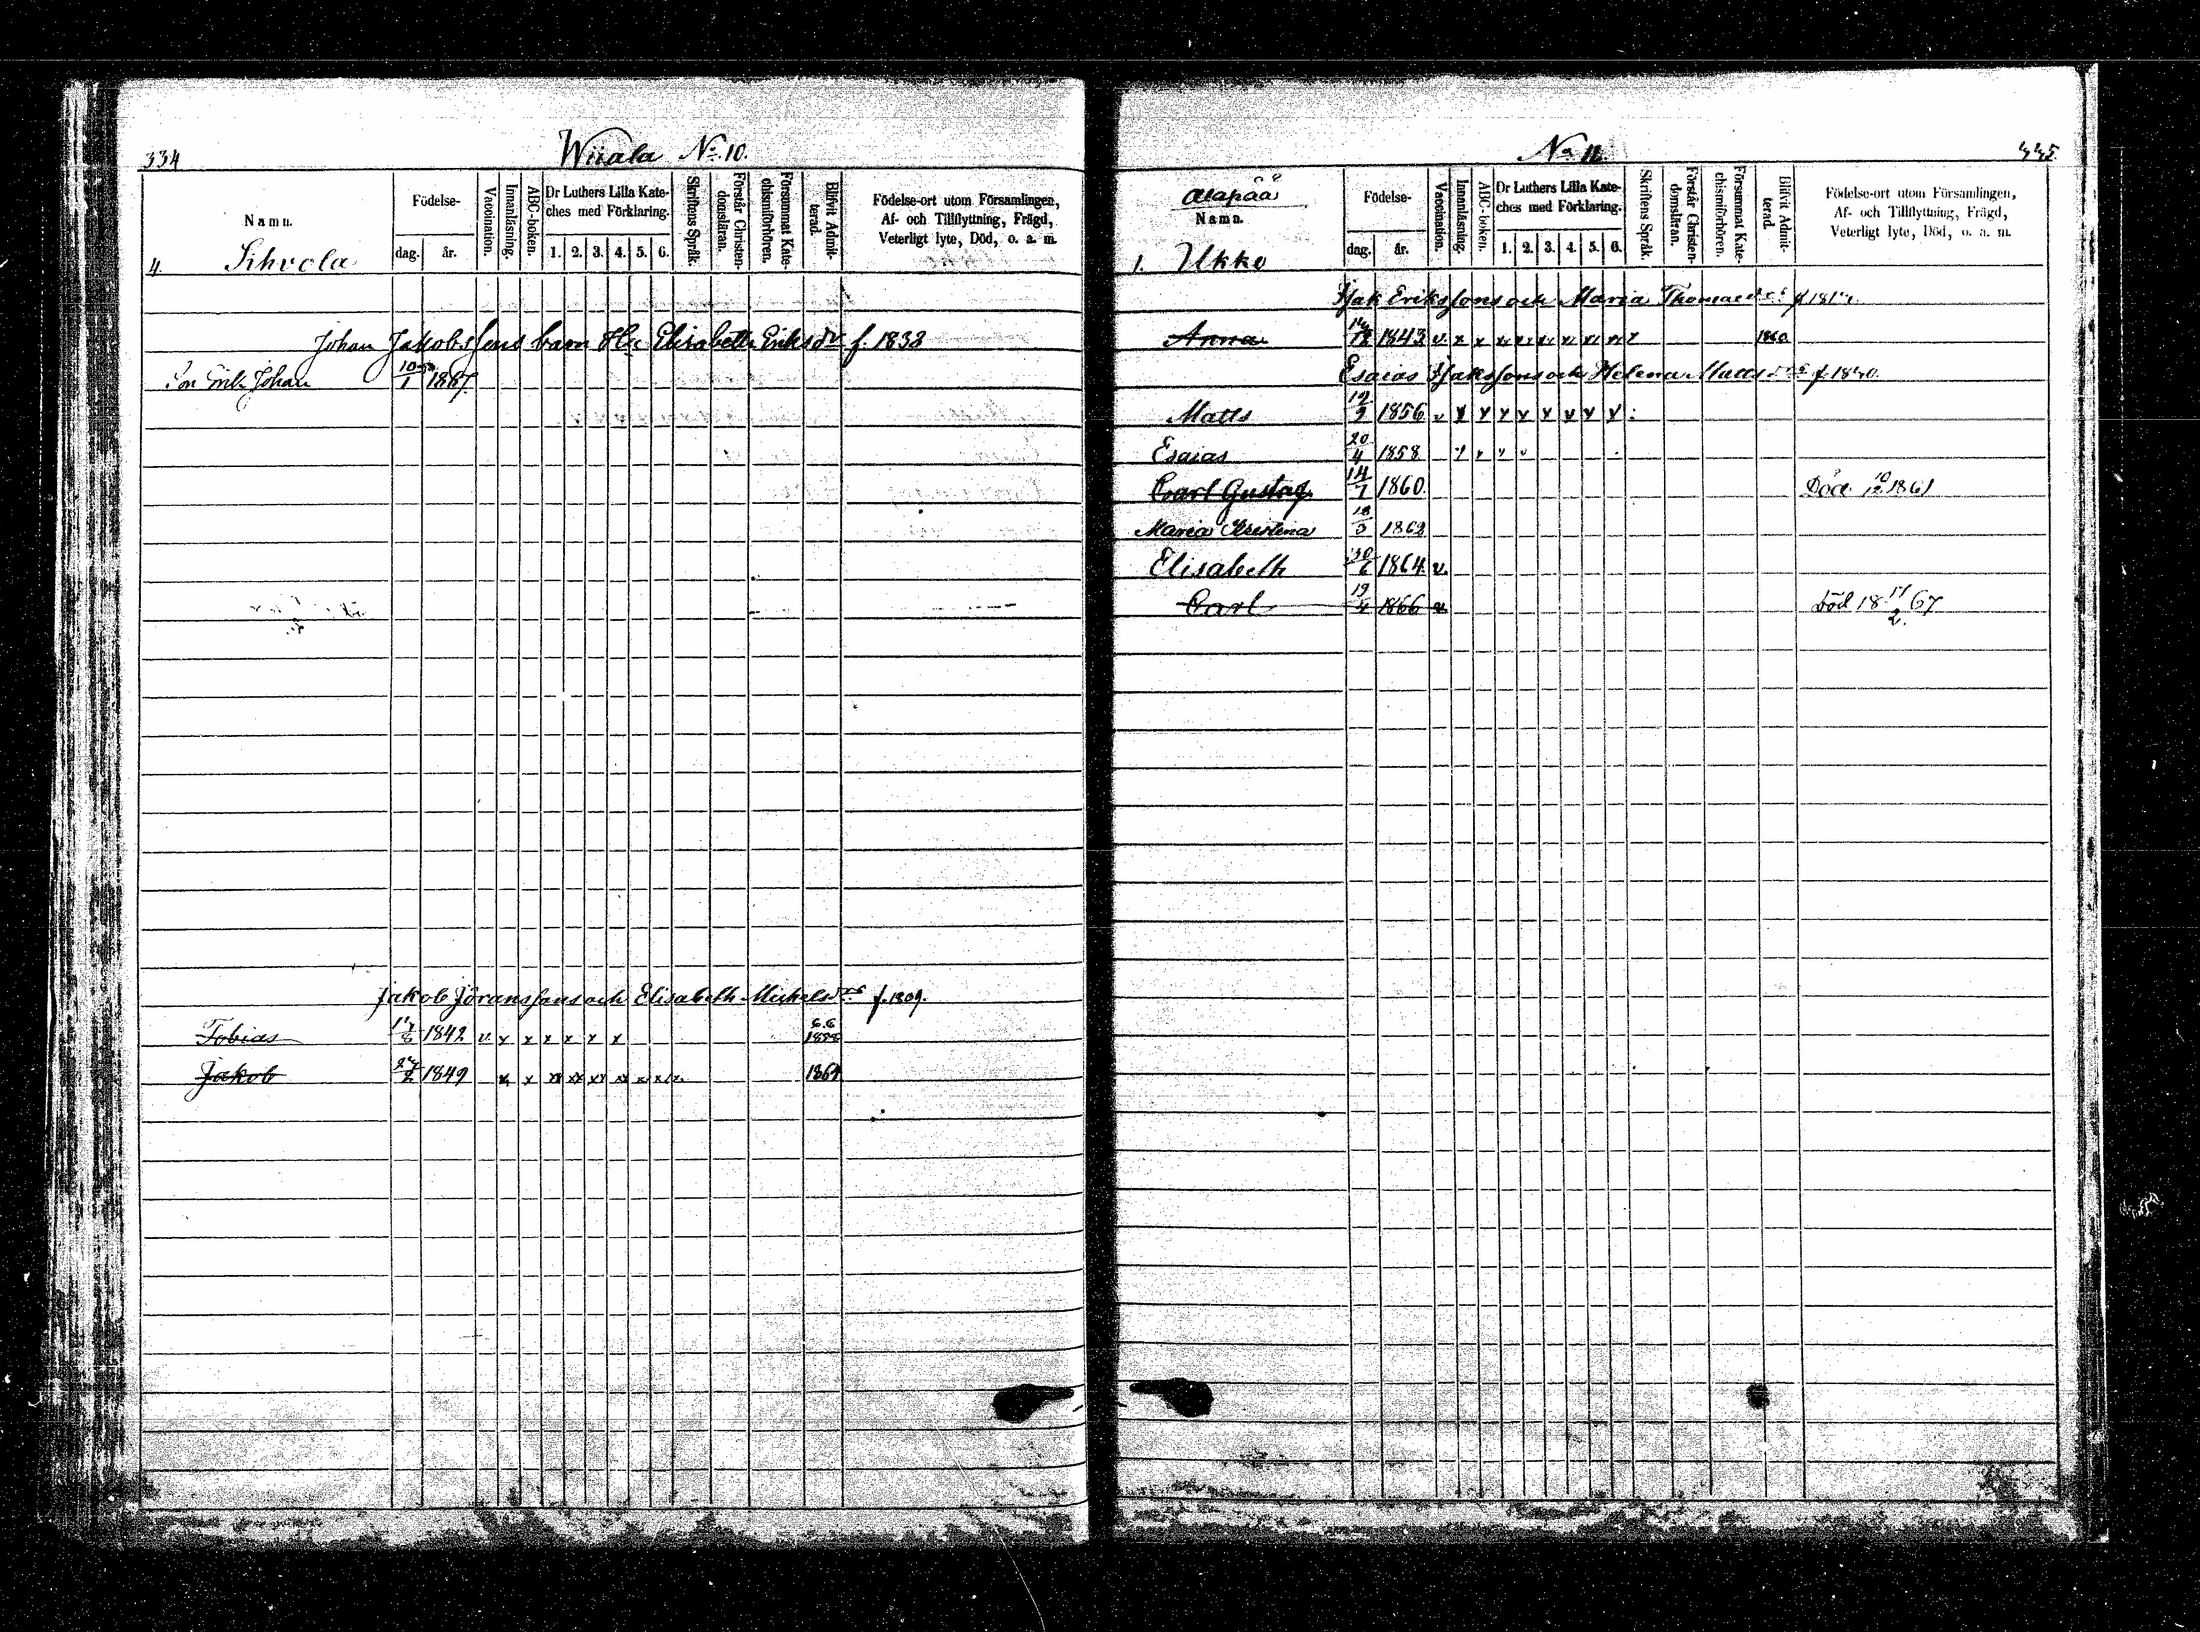 334
Wirala No 10.
Namn.
Födelse-
dag. år.
Vaccination.
Innanläsning.
ABC-boken.
Dr Luthers Lilla Kate-
ches med Förklaring.
1. 2. 3. 4. 5. 6.
Skriftens Språk.
Förstår Christen-
domsläran.
Försummat Kate-
chismiförhören.
Blifvit Admit-
terad.
Födelse-ort utom Församlingen,
Af- och Tillflyttning, Frägd,
Veterligt lyte, Död, o. a. m.
4.
Johan Jakobssons barn H: Elisabeth Eriksdr f. 1833
Son Erik Johan 10/1 1867.
Jakob Göranssons och Elisabeth Michelsdrs f. 1809.
Tobias 1842 v. x x x x x x 1858
Jakob 1849 x x xx xx xx xx x x 1864
No 11.
445
Alapää
Namn.
Födelse-
dag. år.
Vaccination.
Innanläsning.
ABC-boken.
Dr Luthers Lilla Kate-
ches med Förklaring.
1. 2. 3. 4. 5. 6.
Skriftens Språk.
Förstår Christen-
domsläran.
Försummat Kate-
chismiförhören.
Blifvit Admit-
terad.
Födelse-ort utom Församlingen,
Af- och Tillflyttning, Frägd,
Veterligt lyte, Död, o. a. m.
1. Ukko
Isak Erikssons och Maria Thomaedrs
Anna 1843 v. x x 1860.
Esaias Isakssons och Helena Mattsdrs
Matts 1856 v x x x x x x x x
Esaias 20/4 1858
Carl Gustaf 14/1 1860. Död 10/12 1861
Maria Kristina 18/3 1862
Elisabeth 30/6 1864 v.
Carl 19/4 1866 v. Död 18 17/2 67